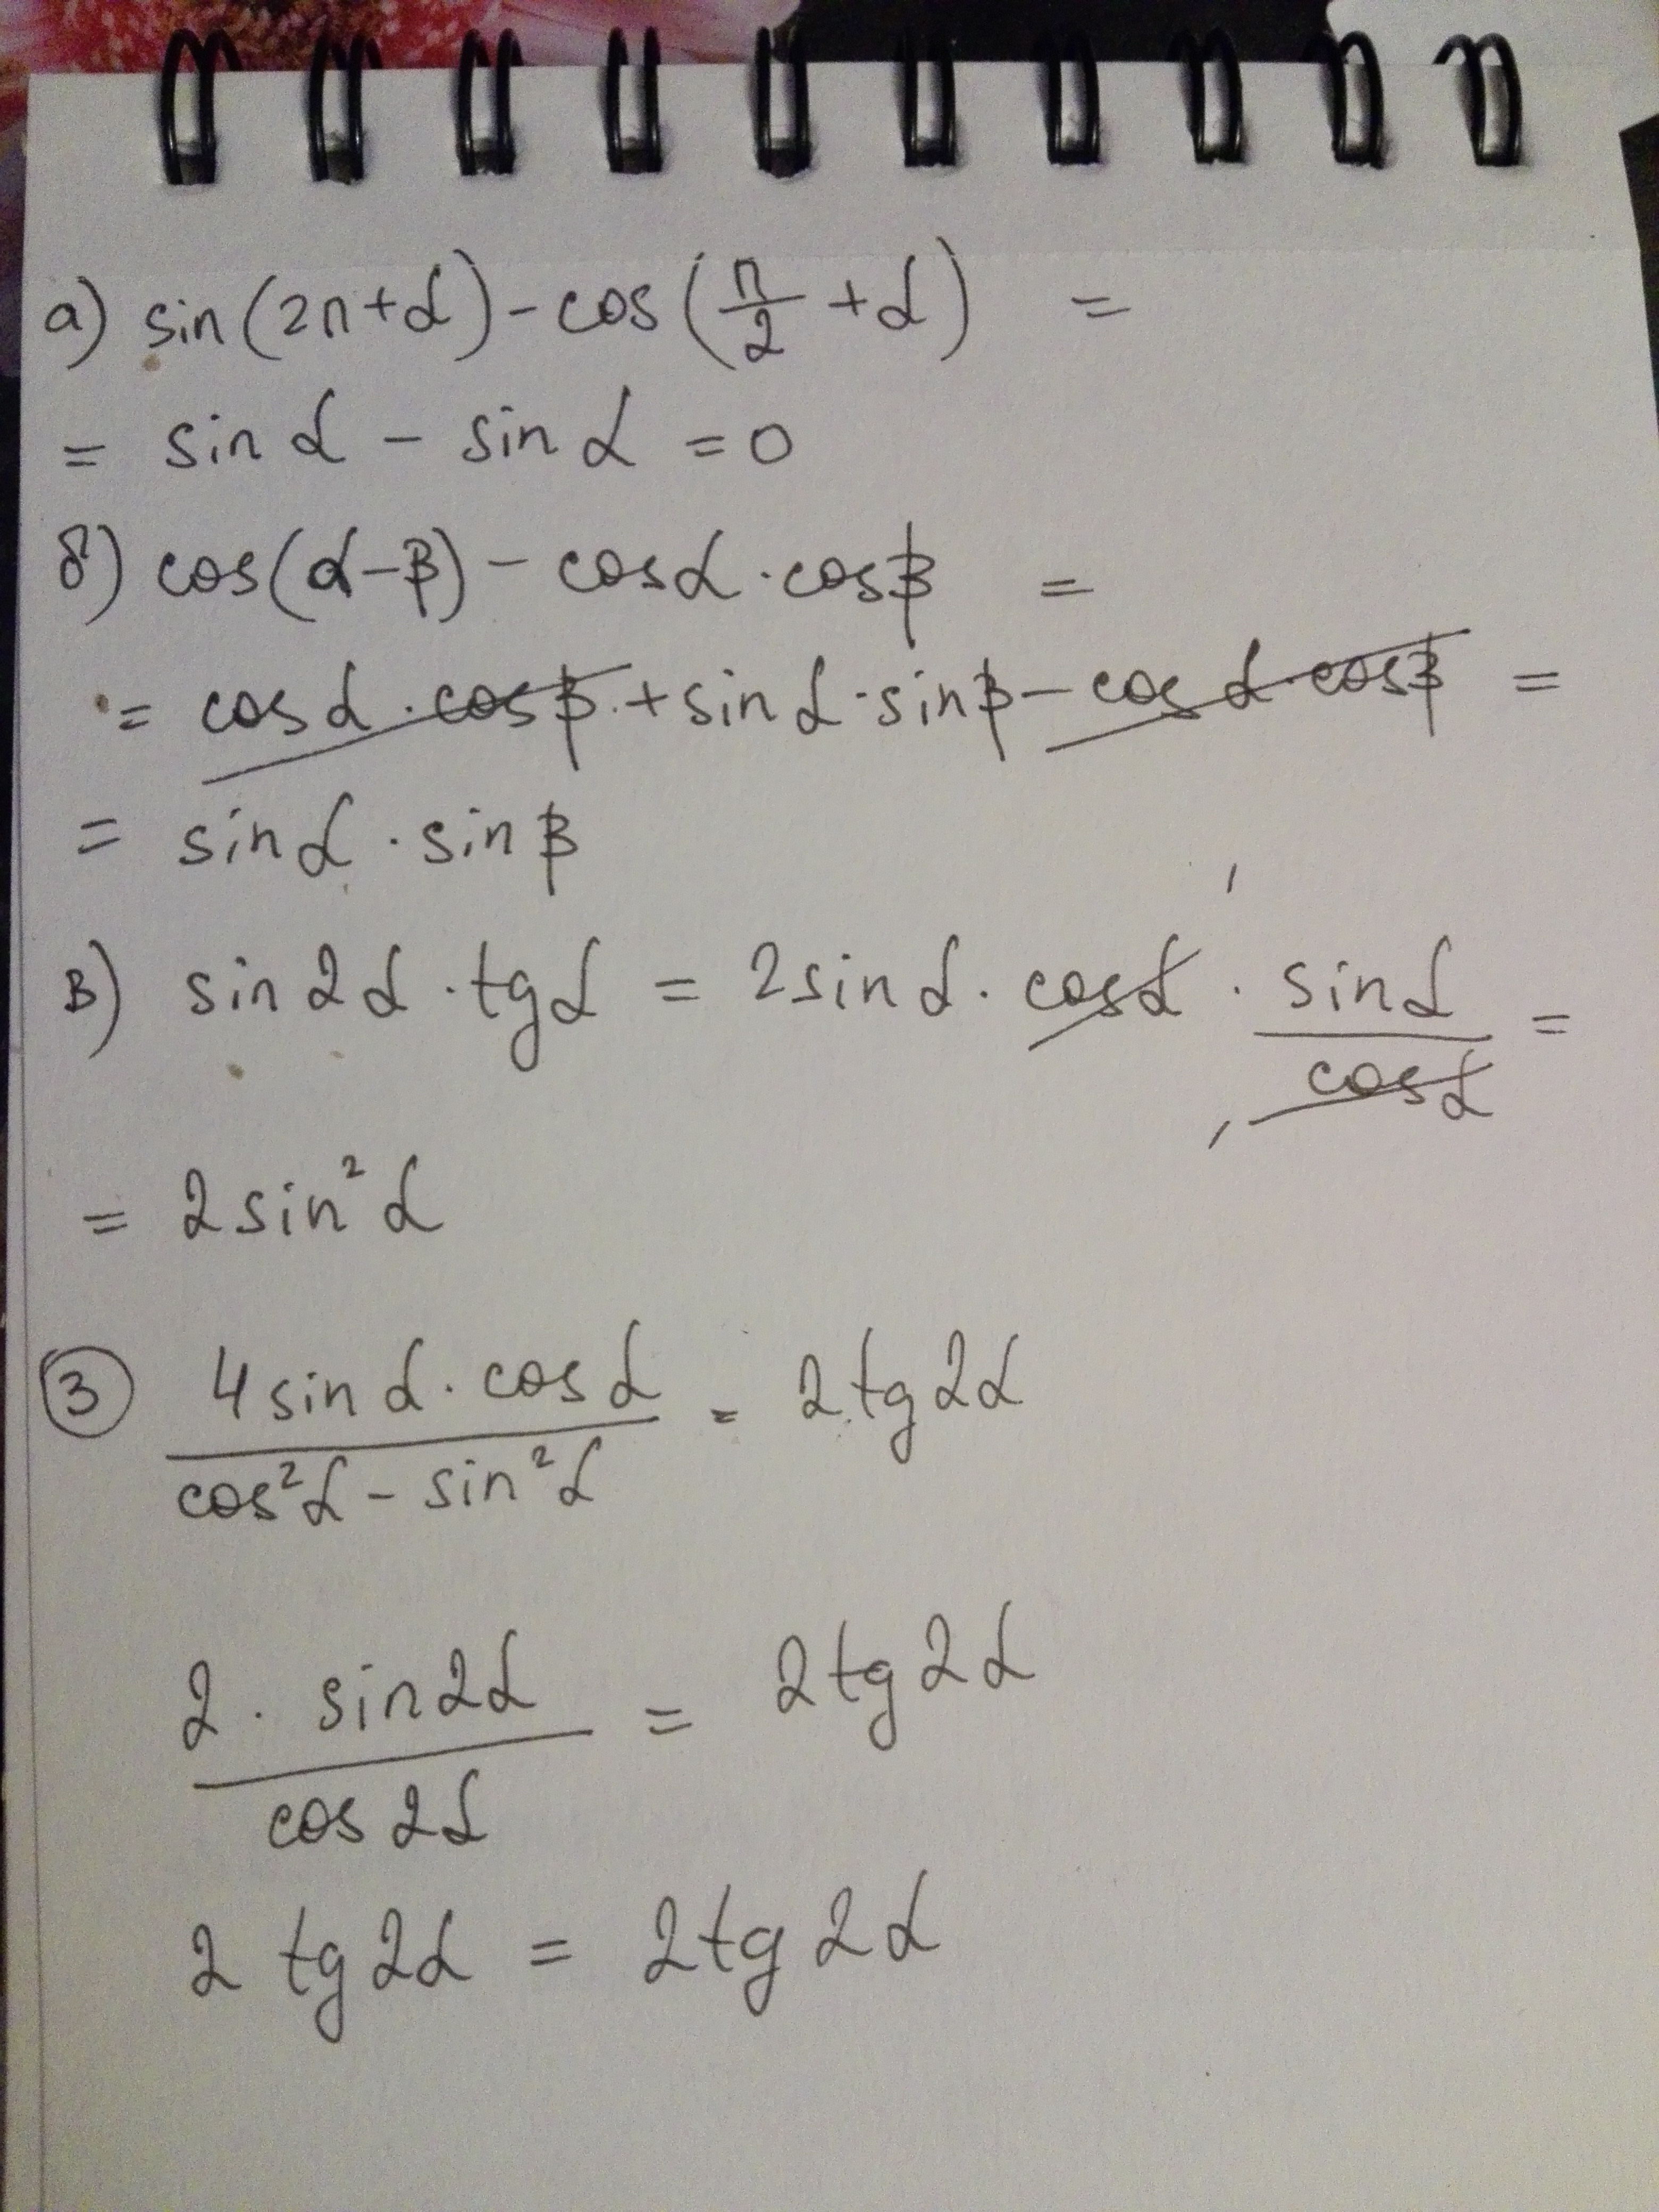 а) sin(2π+α)-cos(π/2+α) =
= sin α - sin α = 0
б) cos(α-β) - cosα · cosβ =
= cosα · cosβ + sinα · sinβ - cosα · cosβ =
= sinα · sinβ
в) sin2α · tgα = 2sinα · cosα · sinα/cosα =
= 2sin²α
③ 4sinα · cosα / cos²α - sin²α = 2tg2α
2 · sin2α / cos2α = 2tg2α
2 tg2α = 2tg2α